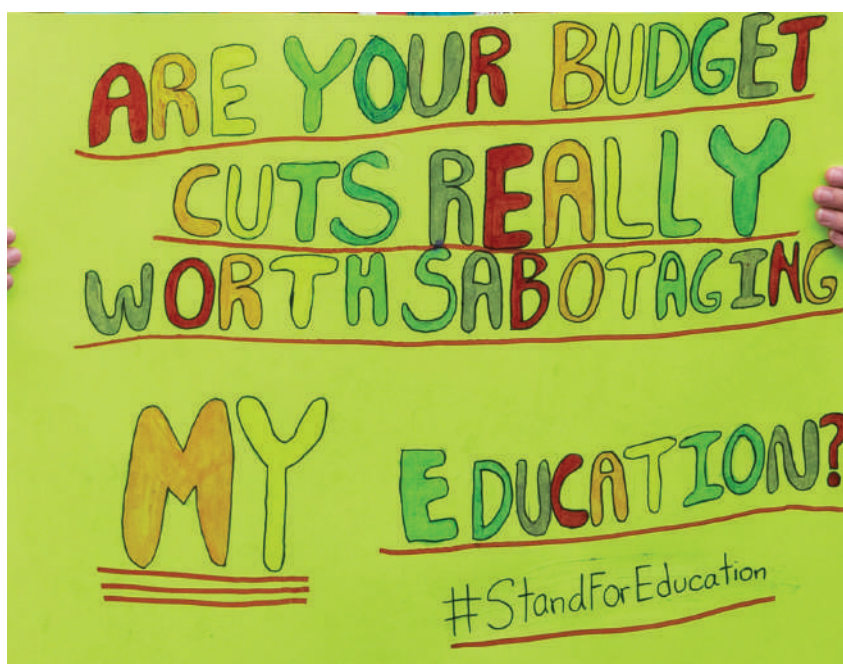 ARE YOUR BUDGET
CUTS REALLY
WORTH SABOTAGING
MY EDUCATION?
#StandForEducation